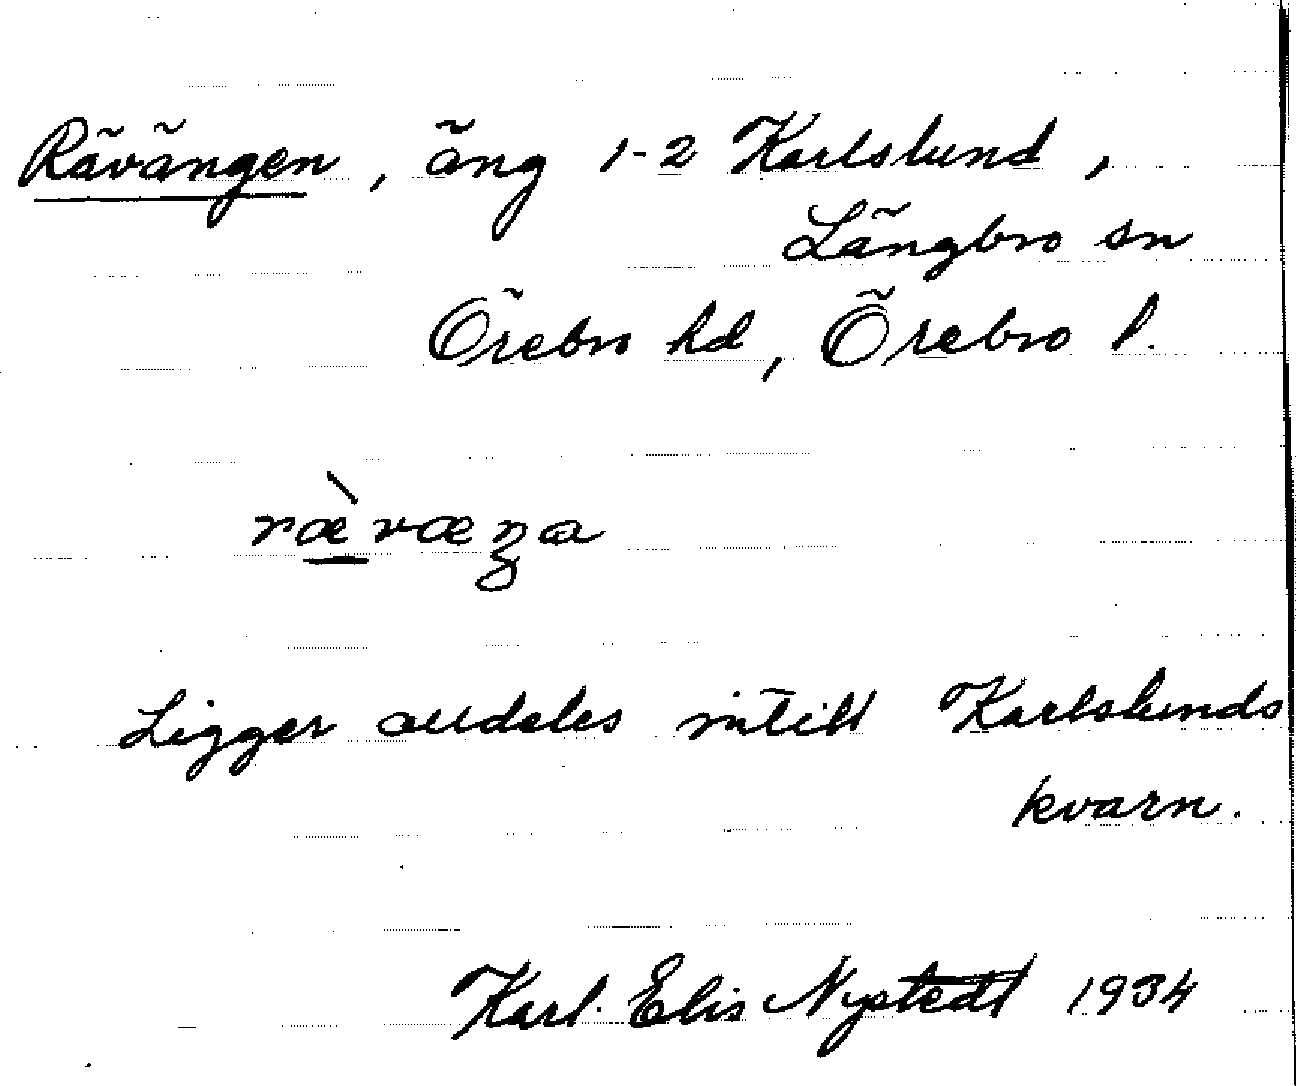 Rävängen, äng 1-2 Karlslund,
Längbro sn
Örebro hd, Örebro l.
ræ̀væŋa
Ligger alldeles intill Karlslunds
kvarn.
Karl. Elis Nystedt 1934